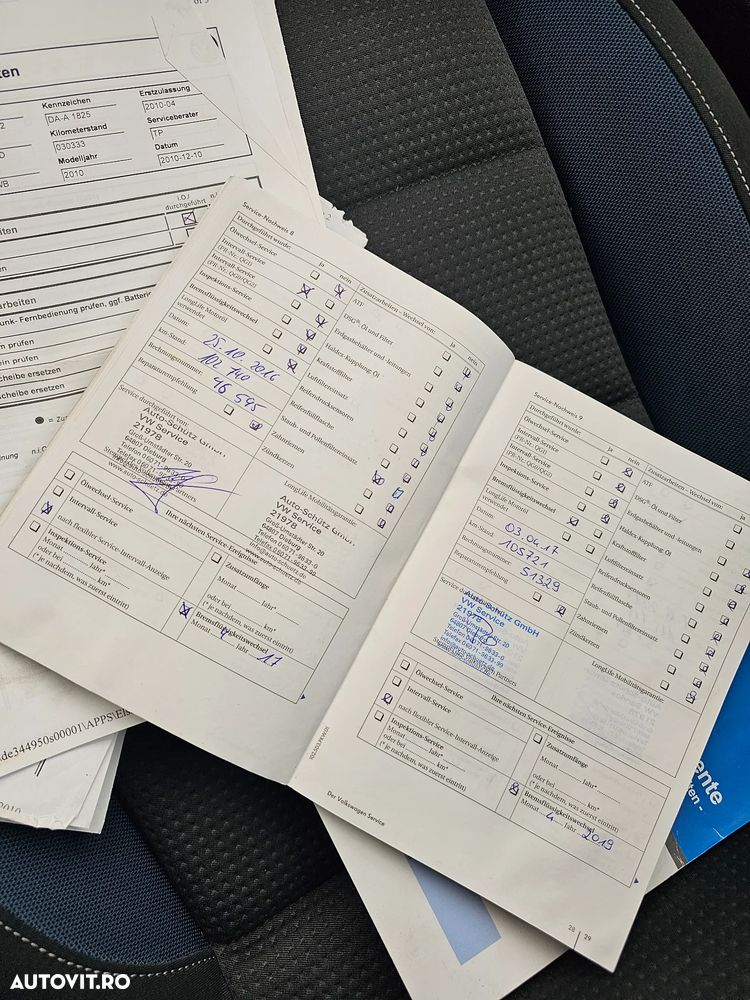 ten
Kennzeichen
Erstzulassung
DA-A 1825
2010-04
Kilometerstand
Serviceberater
030333
TP
Modelljahr
Datum
2010
2010-12-10
i.O./
durchgeführt
eiten
arbeiten
unk- Fernbedienung prüfen, ggf. Batterie
n prüfen
ein prüfen
cheibe ersetzen
cheibe ersetzen
Service-Nachweis 8
Durchgeführt wurde:
ja nein
Ölwechsel-Service
Intervall-Service
(PR-Nr.: QG1)
Intervall-Service
(PR-Nr.: QG0/QG2)
Inspektions-Service
Bremsflüssigkeitswechsel
LongLife Motoröl
verwendet
Datum: 25.10.2016
km-Stand: 102 140
Rechnungsnummer: 46 545
Reparaturempfehlung
Service durchgeführt von:
Auto-Schütz GmbH
VW Service
21978
Groß-Umstädter Str. 20
64807 Dieburg
Zusatzarbeiten - Wechsel von:
ja nein
ATF
DSG®: Öl und Filter
Erdgasbehälter und -leitungen
Haldex-Kupplung: Öl
Kraftstofffilter
Luftfiltereinsatz
Reifendrucksensoren
Reifenfüllflasche
Staub- und Pollenfiltereinsatz
Zahnriemen
Zündkerzen
LongLife Mobilitätsgarantie:
Auto-Schütz
VW Service
21978
Groß-Umstädter Str. 20
64807 Dieburg
Telefon 06071-9633-0
Telefax 06071-9633-99
Ihre nächsten Service-Ereignisse
Ölwechsel-Service
Intervall-Service
nach flexibler Service-Intervall-Anzeige
Inspektions-Service
Monat Jahr*
oder bei km*
(*je nachdem, was zuerst eintritt)
Zusatzumfänge
Monat Jahr*
oder bei km*
(*je nachdem, was zuerst eintritt)
Bremsflüssigkeitswechsel
Monat 4 Jahr 17
Service-Nachweis 9
Durchgeführt wurde:
ja nein
Ölwechsel-Service
Intervall-Service
(PR-Nr.: QG1)
Intervall-Service
(PR-Nr.: QG0/QG2)
Inspektions-Service
Bremsflüssigkeitswechsel
LongLife Motoröl
verwendet
Datum: 03.04.17
km-Stand: 105721
Rechnungsnummer: 51329
Reparaturempfehlung
Auto-Schütz GmbH
VW Service
21978
Groß-Umstädter Str. 20
64807 Dieburg
Telefon 06071-9633-0
Telefax 06071-9633-99
Zusatzarbeiten - Wechsel von:
ja nein
ATF
DSG®: Öl und Filter
Erdgasbehälter und -leitungen
Haldex-Kupplung: Öl
Kraftstofffilter
Luftfiltereinsatz
Reifendrucksensoren
Reifenfüllflasche
Staub- und Pollenfiltereinsatz
Zahnriemen
Zündkerzen
LongLife Mobilitätsgarantie:
Ihre nächsten Service-Ereignisse
Ölwechsel-Service
Intervall-Service
nach flexibler Service-Intervall-Anzeige
Inspektions-Service
Monat Jahr*
oder bei km*
(*je nachdem, was zuerst eintritt)
Zusatzumfänge
Monat Jahr*
oder bei km*
(*je nachdem, was zuerst eintritt)
Bremsflüssigkeitswechsel
Monat 4 Jahr 2019
Der Volkswagen Service
28 29
ente
AUTOVIT.RO